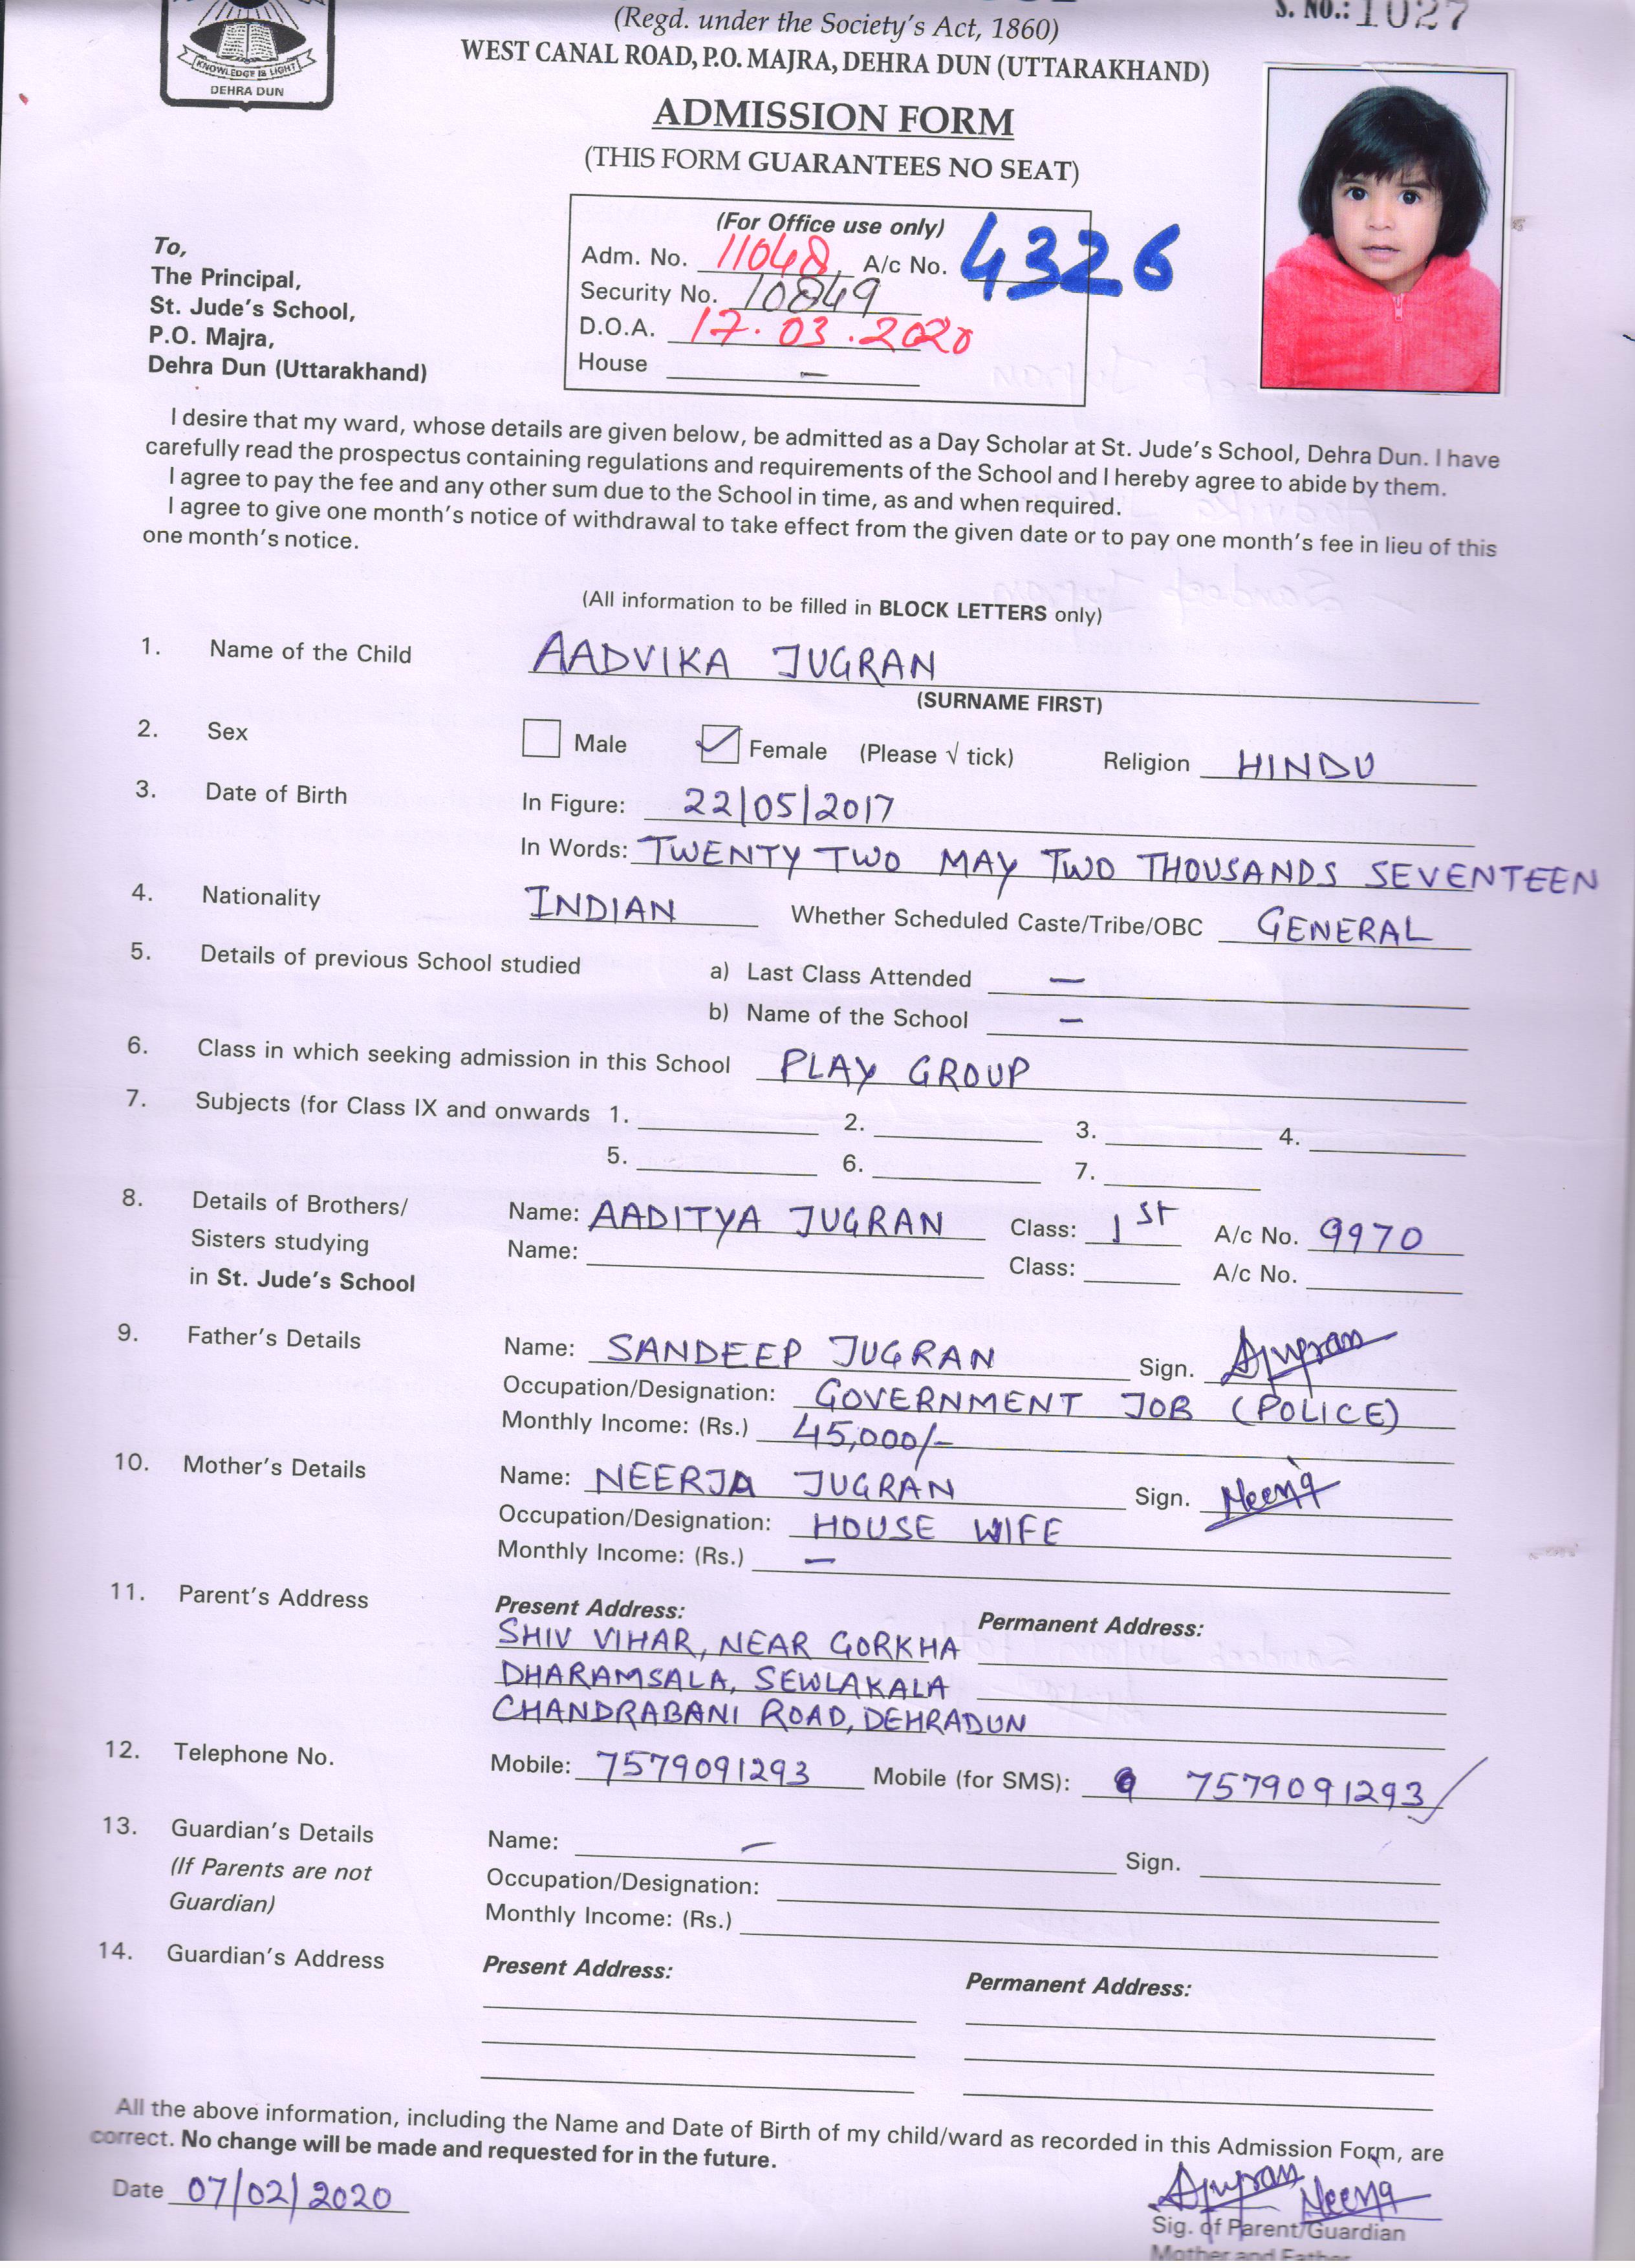 (Regd. under the Society's Act, 1860)
S. NO.: 1027
WEST CANAL ROAD, P.O. MAJRA, DEHRA DUN (UTTARAKHAND)
KNOWLEDGE IS LIGHT
DEHRA DUN
ADMISSION FORM
(THIS FORM GUARANTEES NO SEAT)
(For Office use only)
Adm. No. 11048 A/c No. 4326
Security No. 10849
D.O.A. 17.03.2020
House –
To,
The Principal,
St. Jude's School,
P.O. Majra,
Dehra Dun (Uttarakhand)
I desire that my ward, whose details are given below, be admitted as a Day Scholar at St. Jude's School, Dehra Dun. I have
carefully read the prospectus containing regulations and requirements of the School and I hereby agree to abide by them.
I agree to pay the fee and any other sum due to the School in time, as and when required.
I agree to give one month's notice of withdrawal to take effect from the given date or to pay one month's fee in lieu of this
one month's notice.
(All information to be filled in BLOCK LETTERS only)
1. Name of the Child AADVIKA JUGRAN
(SURNAME FIRST)
2. Sex Male ✓ Female (Please √ tick) Religion HINDU
3. Date of Birth In Figure: 22/05/2017
In Words: TWENTY TWO MAY TWO THOUSANDS SEVENTEEN
4. Nationality INDIAN Whether Scheduled Caste/Tribe/OBC GENERAL
5. Details of previous School studied a) Last Class Attended –
b) Name of the School –
6. Class in which seeking admission in this School PLAY GROUP
7. Subjects (for Class IX and onwards 1. 2. 3. 4.
5. 6. 7.
8. Details of Brothers/ Name: AADITYA JUGRAN Class: 1st A/c No. 9970
Sisters studying Name: Class: A/c No.
in St. Jude's School
9. Father's Details Name: SANDEEP JUGRAN Sign. SJugran
Occupation/Designation: GOVERNMENT JOB (POLICE)
Monthly Income: (Rs.) 45,000/-
10. Mother's Details Name: NEERJA JUGRAN Sign.
Occupation/Designation: HOUSE WIFE
Monthly Income: (Rs.) –
11. Parent's Address Present Address: Permanent Address:
SHIV VIHAR, NEAR GORKHA
DHARAMSALA, SEWLAKALA
CHANDRABANI ROAD, DEHRADUN
12. Telephone No. Mobile: 7579091293 Mobile (for SMS): 7579091293
13. Guardian's Details Name: – Sign.
(If Parents are not Occupation/Designation:
Guardian) Monthly Income: (Rs.)
14. Guardian's Address Present Address: Permanent Address:
All the above information, including the Name and Date of Birth of my child/ward as recorded in this Admission Form, are
correct. No change will be made and requested for in the future.
Date 07/02/2020 SJugran
Sig. of Parent/Guardian
Mother and Father